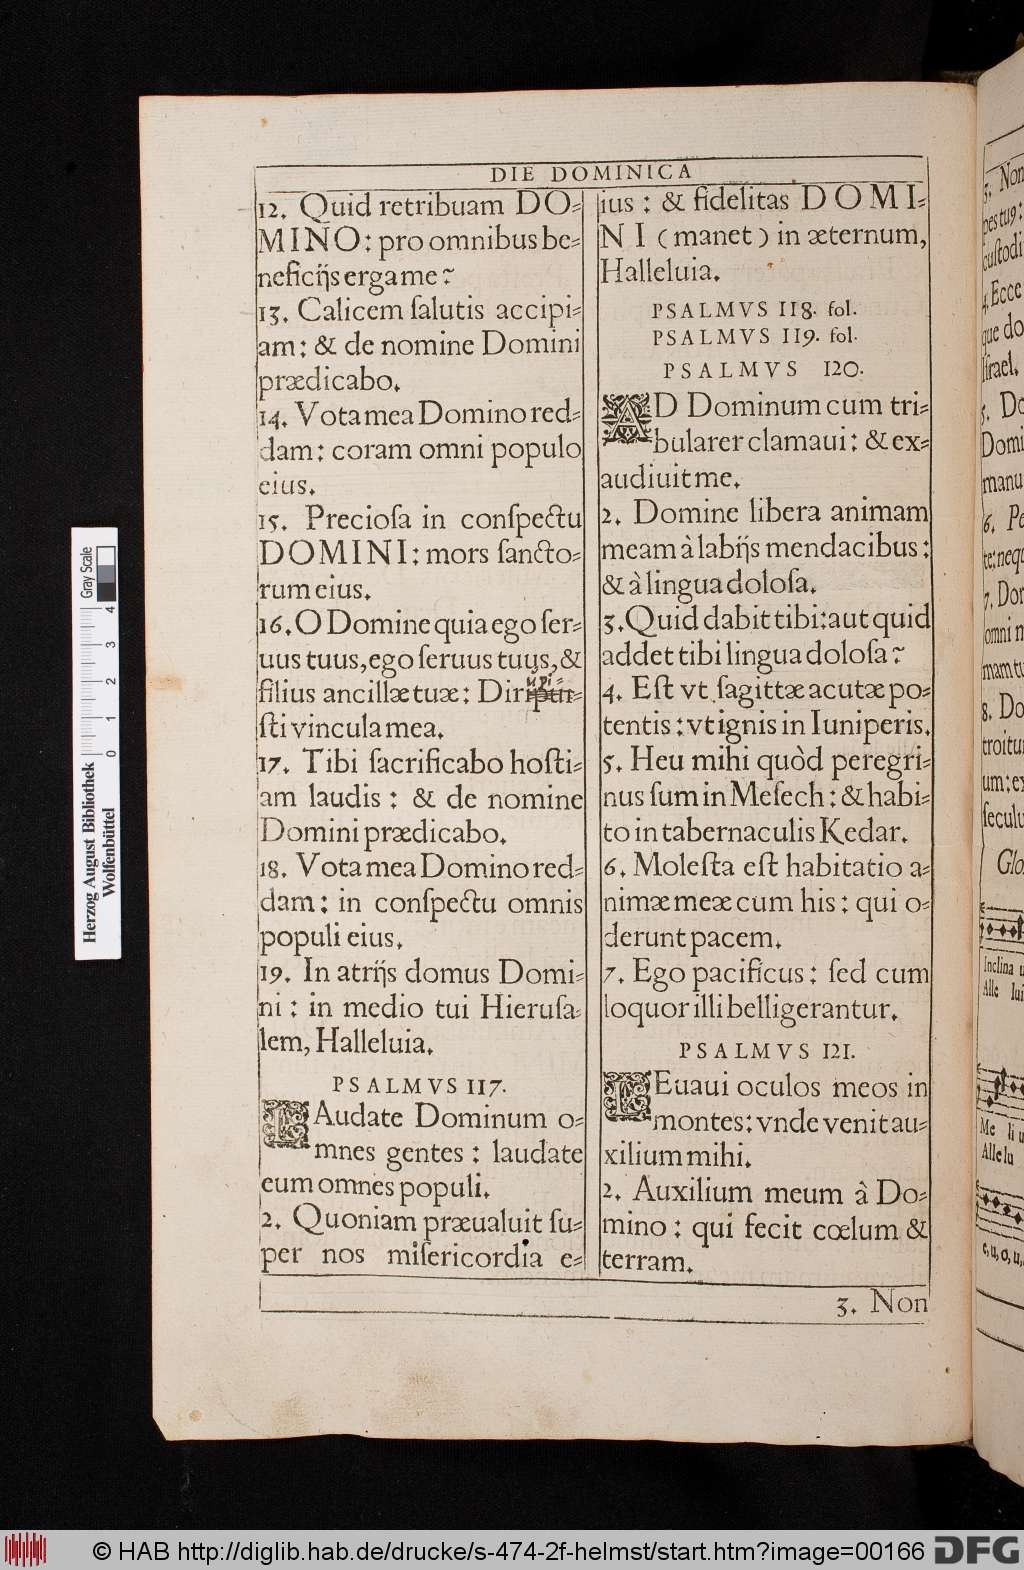 DIE DOMINICA
12. Quid retribuam DO-
MINO: pro omnibus be-
neficijs erga me?
13. Calicem ſalutis accipi-
am: & de nomine Domini
prædicabo.
14. Vota mea Domino red-
dam: coram omni populo
eius.
15. Precioſa in conſpectu
DOMINI: mors ſancto-
rum eius.
16. O Domine quia ego ſer-
uus tuus, ego ſeruus tuus, &
filius ancillæ tuæ: Dirupi-
ſti vincula mea.
17. Tibi ſacrificabo hoſti-
am laudis: & de nomine
Domini prædicabo.
18. Vota mea Domino red-
dam: in conſpectu omnis
populi eius.
19. In atrijs domus Domi-
ni: in medio tui Hieruſa-
lem, Halleluia.
PSALMVS 117.
LAudate Dominum o-
mnes gentes: laudate
eum omnes populi.
2. Quoniam præualuit ſu-
per nos miſericordia e-
ius: & fidelitas DOMI-
NI (manet) in æternum,
Halleluia.
PSALMVS 118. fol.
PSALMVS 119. fol.
PSALMVS 120.
AD Dominum cum tri-
bularer clamaui: & ex-
audiuit me.
2. Domine libera animam
meam à labijs mendacibus:
& à lingua doloſa.
3. Quid dabit tibi: aut quid
addet tibi lingua doloſa?
4. Eſt vt ſagittæ acutæ po-
tentis: vt ignis in Iuniperis.
5. Heu mihi quòd peregri-
nus ſum in Meſech: & habi-
to in tabernaculis Kedar.
6. Moleſta eſt habitatio a-
nimæ meæ cum his: qui o-
derunt pacem.
7. Ego pacificus: ſed cum
loquor illi belligerantur.
PSALMVS 121.
LEuaui oculos meos in
montes: vnde venit au-
xilium mihi.
2. Auxilium meum à Do-
mino: qui fecit cœlum &
terram.
3. Non
3. Non
cuſtodi
4. Ecce
que do
Iſrael.
5. Do
Domi
manu
6. Pe
te: neq
7. Dor
omni m
mam tu
8. Do
troitu
um: ex
ſeculu
Glo
Inclina
Alle lui
Me li
Alle lu
e, u, o, u,
Herzog August Bibliothek
Wolfenbüttel
0 1 2 3 4
Gray Scale
© HAB http://diglib.hab.de/drucke/s-474-2f-helmst/start.htm?image=00166
DFG